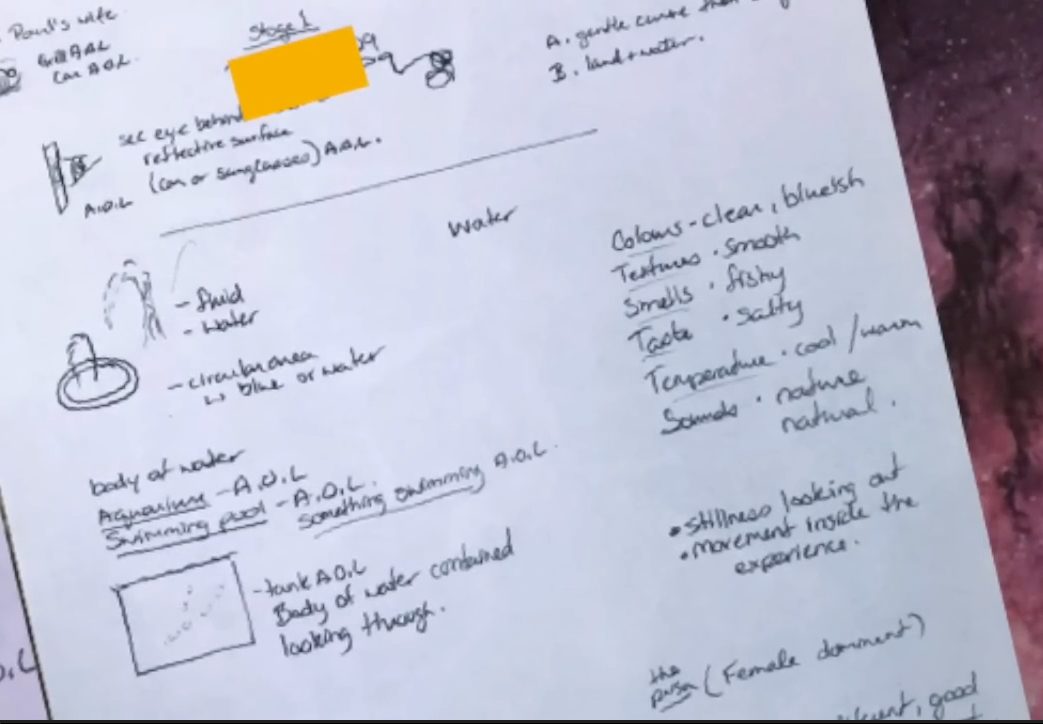 Paul's wife
Grill A.O.L
Car A.O.L.
Stage 1
A. gentle curve then
B. land + water.
see eye behind
reflective surface
(car or sunglasses) A.O.L.
A.O.L
Water
- fluid
- water
- circular area
blue or water
Colours - clear, blueish
Textures · smooth
Smells · fishy
Taste · salty
Temperature · cool / warm
Sounds · nature
natural.
body of water
Aquarium - A.O.L
Swimming pool - A.O.L.
Something swimming A.O.L.
- tank A.O.L
Body of water contained
looking through.
• Stillness looking out
• movement inside the
experience.
the
(Female dominent)
good